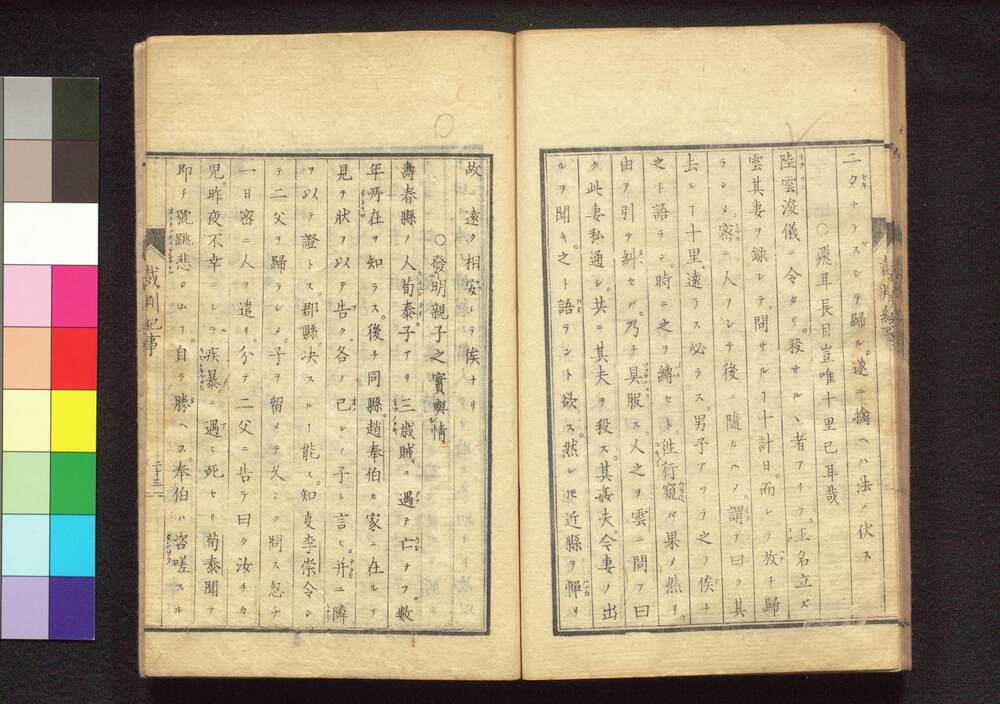 二タナラスシテ歸ル。遂ニ擒ヘハ法ニ伏ス
○飛耳長目豈唯十里已耳哉
陸雲浚儀ニ令タリ。殺サルヽ者アリテ。主名立ズ
雲其妻ヲ録シテ。問サルヿ十計日。而シテ放チ歸
ラシメ。密ニ人ヲシテ後ニ隨カハ。謂テ曰ク其
去ルヿ十里。遠ラス必ラス。男子アツラ之ヲ俟チ
之ト語ラン。時ニ之ヲ縛セト。性行窺バ果メ然リ。
由テ引テ糾セバ。乃チ具服ス人之ヲ雲ニ問フ曰
ク此妻私通シ。共ニ其夫ヲ殺ス。其姦夫令妻ノ出
ルヲ聞キ。之ト語ラント欲ス。然レ𪜈近縣ヲ憚リ
故ニ遠ク相安シテ俟ナリ
○發明親子之實與情
壽春縣ノ人荀泰子アリ三歳賊ニ遇テ亡ナフ。數
年所在ヲ知ラス。後チ同縣。趙奉伯カ家ニ在ルヲ
見ヲ狀フ以テ告ク。各ノ己レノ子ト言ヒ。并ニ隣
ヲ以テ證トス。郡縣决スルヿ能ス。知叓李崇令シ
テ二父ヲ歸ラシメ。子ヲ留メテ久シク問ス忽チ
一日密ニ人ヲ遣リ。分テ二父ニ告テ曰ク汝チカ
兒。昨夜不幸ニシテ疾暴ニ遇ヒ死セリ荀泰聞テ
即チ號跳悲シム。自ラ勝ヘス。奉伯ハ咨嗟スル
裁判紀事
二十三